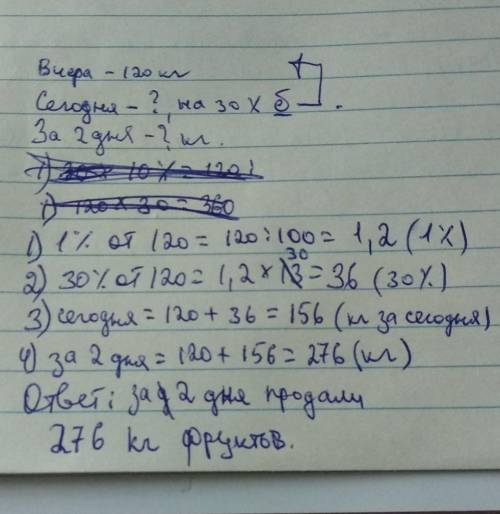 Вчера – 120 кг
Сегодня – ?, на 30 % б.
За 2 дня – ? кг.
1) 1% от 120 = 120 : 100 = 1,2 (1%)
2) 30% от 120 = 1,2 × 30 = 36 (30%)
3) сегодня = 120 + 36 = 156 (кг за сегодня)
4) за 2 дня = 120 + 156 = 276 (кг)
Ответ: за 2 дня продали
276 кг фруктов.